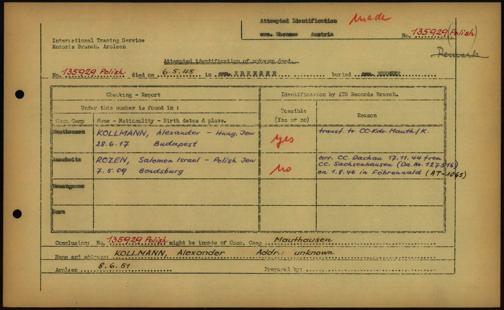 Attempted Identification made
cem. Ebensee Austria
International Tracing Service
Records Branch, Arolsen
No. 135929 (Polish)
Attempted identification of unknown dead.
No. 135929 Polish died on 6.5.45 in cem. EBENSEE buried cem. EBENSEE
Checking - Report
Under this number is found in :
Identification by ITS Records Branch.
Conc. Camp Name - Nationality - Birth dates & place.
Possible (Yes or no)
Reason
Mauthausen KOLLMANN, Alexander - Hung. Jew
28.6.17 Budapest
yes
transf. to CC-Kdo. Mauth/K.
Auschwitz ROZEN, Salomon Israel - Polish Jew
7.5.09
no
arr. CC. Dachau 17.11.44 from
CC. Sachsenhausen
on 1.8.46 in Föhrenwald
Neuengamme
Dora
Conclusion: No. 135929 Polish might be inmate of Conc. Camp Mauthausen
Name and address: KOLLMANN, Alexander Addr.: unknown
Arolsen 8.6.51 Prepared by: